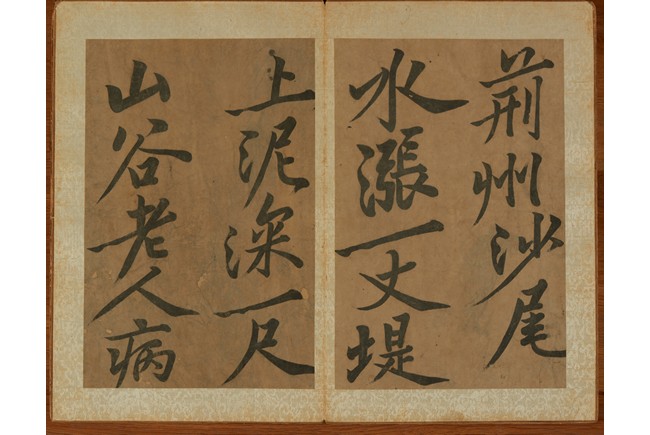 荆州沙尾
水漲一丈堤
上泥深一尺
山谷老人病